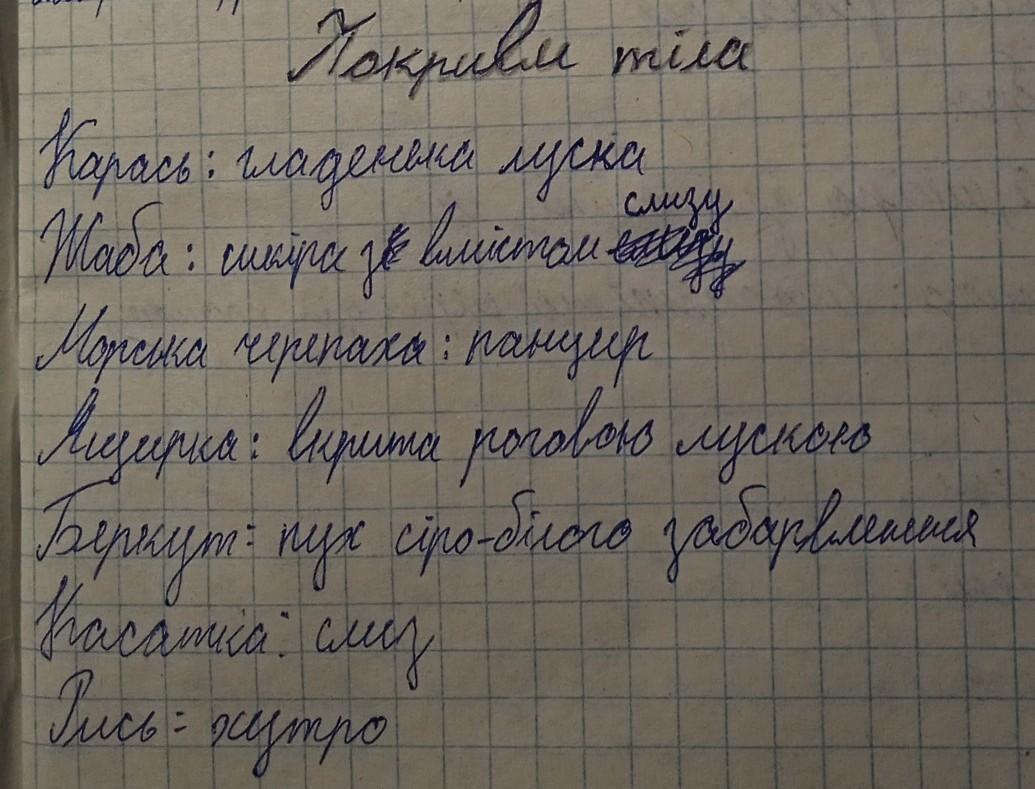 Покриви тіла
Карась: гладенька луска
Жаба: шкіра з вмістом слизу
Морська черепаха: панцир
Ящирка: вкрита роговою лускою
Беркут: пух сіро-білого забарвлення
Касатка: слиз
Рись: хутро